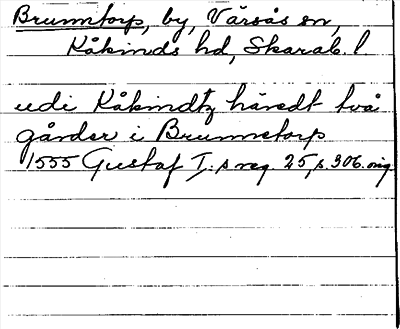 Brumstorp, by, Värsås sn,
Kåkinds hd, Skarab. l.
udi Kåkindtz häredt två
gårder i Brumetorp
1555 Gustaf I:s reg. 25, s. 306. orig.